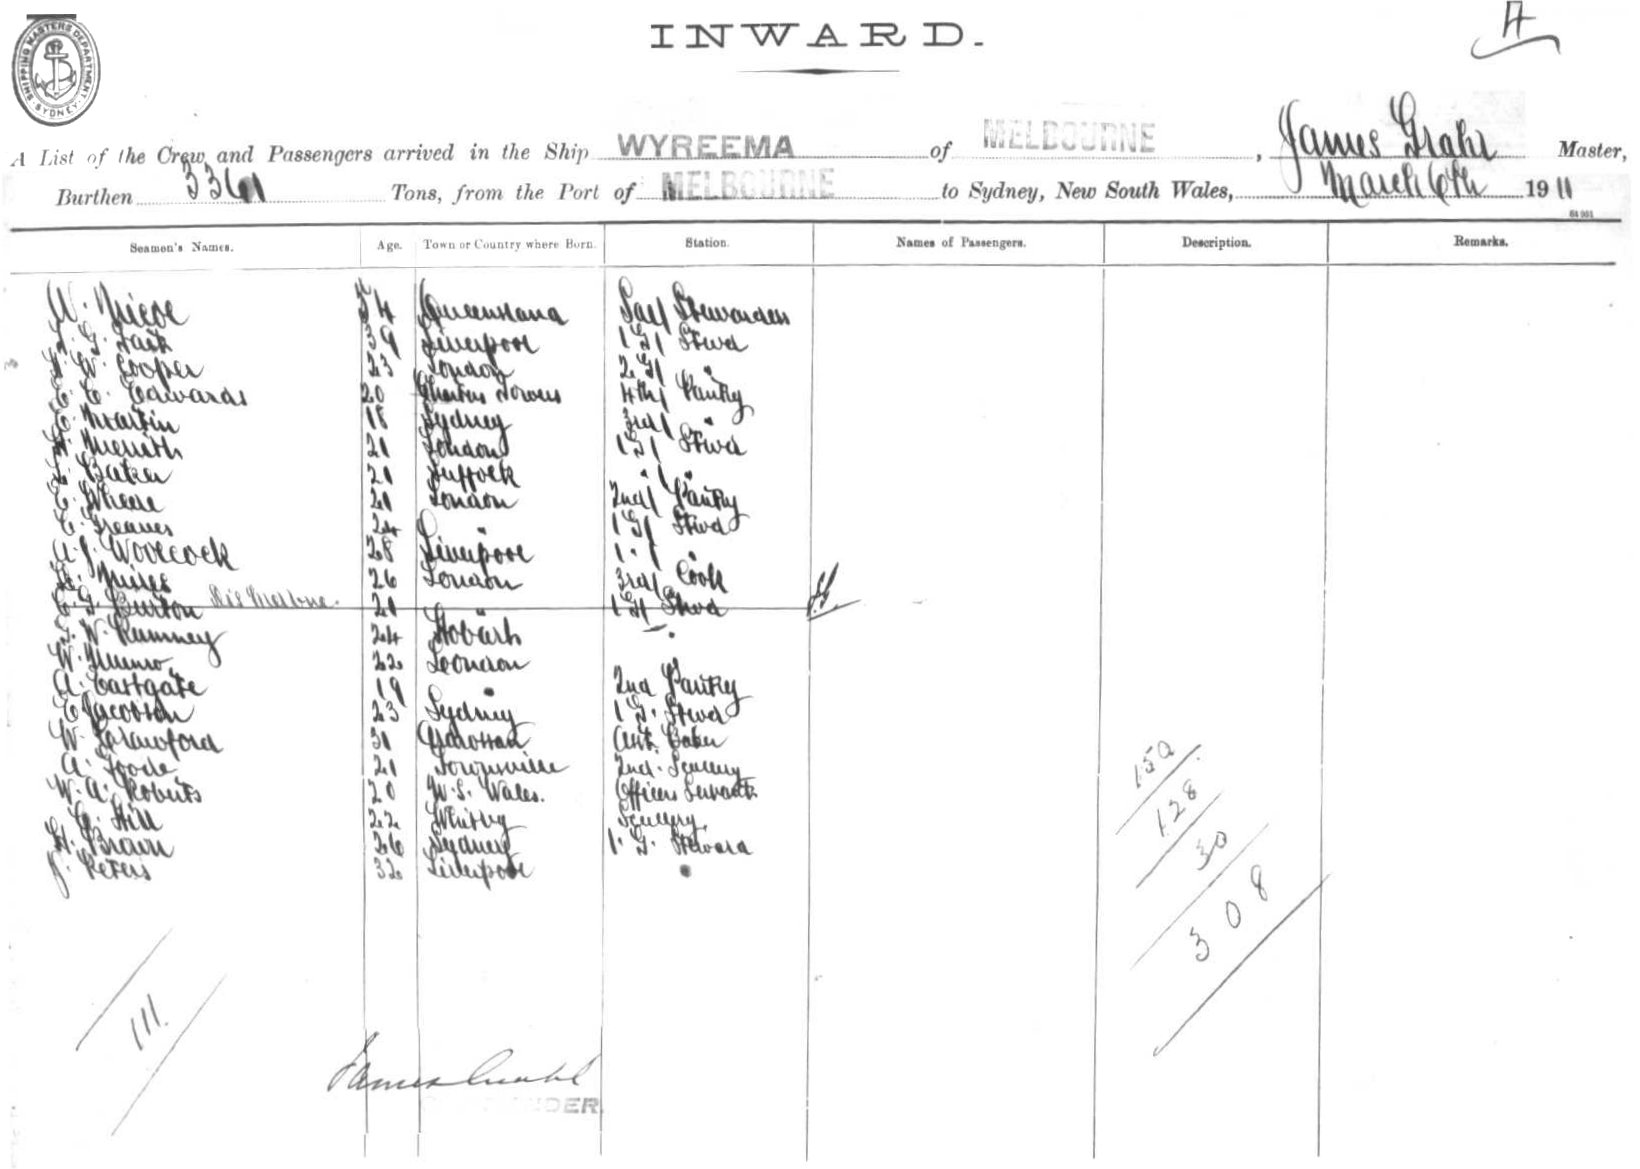 SHIPPING MASTERS DEPARTMENT
SYDNEY
INWARD.
A List of the Crew and Passengers arrived in the Ship WYREEMA of MELBOURNE, James Grahl Master,
Burthen 3361 Tons, from the Port of MELBOURNE to Sydney, New South Wales, March 6th 1911
Seamen's Names. Age. Town or Country where Born. Station. Names of Passengers. Description. Remarks.
34 Queensland Stewardess
39 Liverpool 1 Gl Stwd
W. Cooper 23 London 2 Gl "
E. E. Edwards 20 Charters Towers 4th Pantry
E. Martin 18 Sydney 3rd "
21 London 1 Gl Stwd
Baker 21 Suffock " "
E. 21 London 2nd Pantry
E. Greaves 24 " 1 Gl Stwd
A. J. Woolcock 28 Liverpool 1 " "
26 London 3rd Cook
E. G. Burton 21 " 1 Gl Stwd
W. Rumney 24 Hobart "
W. Munro 22 London
A. Eastgate 19 " 2nd Pantry
E. Jacobson 23 Sydney 1 G. Stwd
W. Crawford 31 Asst. Baker
A. Goode 21 Townsville 2nd. Scullery
W. A. Roberts 20 N. S. Wales. Officers Servant
Hill 22 Whitby Scullery
H. Brown 26 Sydney 1. G. Steward
J. Peters 32 Liverpool "
150
128
30
308
111.
James Grahl